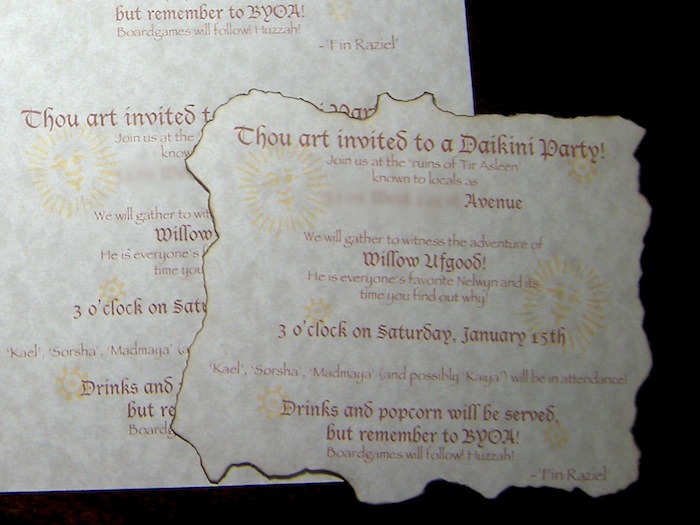 but remember to BYOA!
Boardgames will follow! Huzzah!
-'Fin Raziel'
Thou art invited t
Join us at the
know
We will gather to wit
Willow
He is everyone's f
time you
3 o'clock on Satu
'Kael', 'Sorsha', 'Madmaya' (a
Drinks and
but re
Boardg
Thou art invited to a Daikini Party!
Join us at the 'ruins of Tir Asleen'
known to locals as
Avenue
We will gather to witness the adventure of
Willow Ufgood!
He is everyone's favorite Nelwyn and its
time you find out why!
3 o'clock on Saturday, January 15th
'Kael', 'Sorsha', 'Madmaya' (and possibly 'Kaiya') will be in attendance!
Drinks and popcorn will be served,
but remember to BYOA!
Boardgames will follow! Huzzah!
-'Fin Raziel'